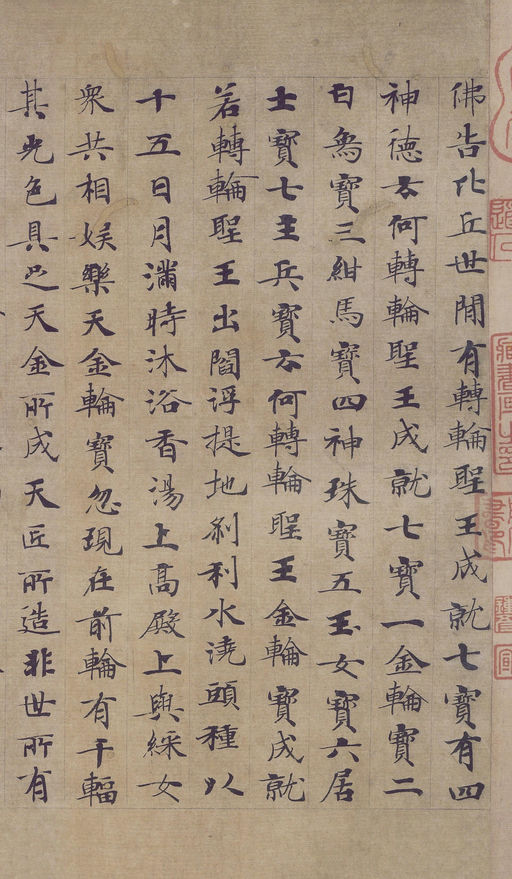 佛告比丘世間有轉輪聖王成就七寶有四
神德云何轉輪聖王成就七寶一金輪寶二
白象寶三紺馬寶四神珠寶五玉女寶六居
士寶七主兵寶云何轉輪聖王金輪寶成就
若轉輪聖王出閻浮提地刹利水澆頭種以
十五日月滿時沐浴香湯上高殿上與綵女
衆共相娛樂天金輪寶忽現在前輪有千輻
其光色具足天金所成天匠所造非世所有